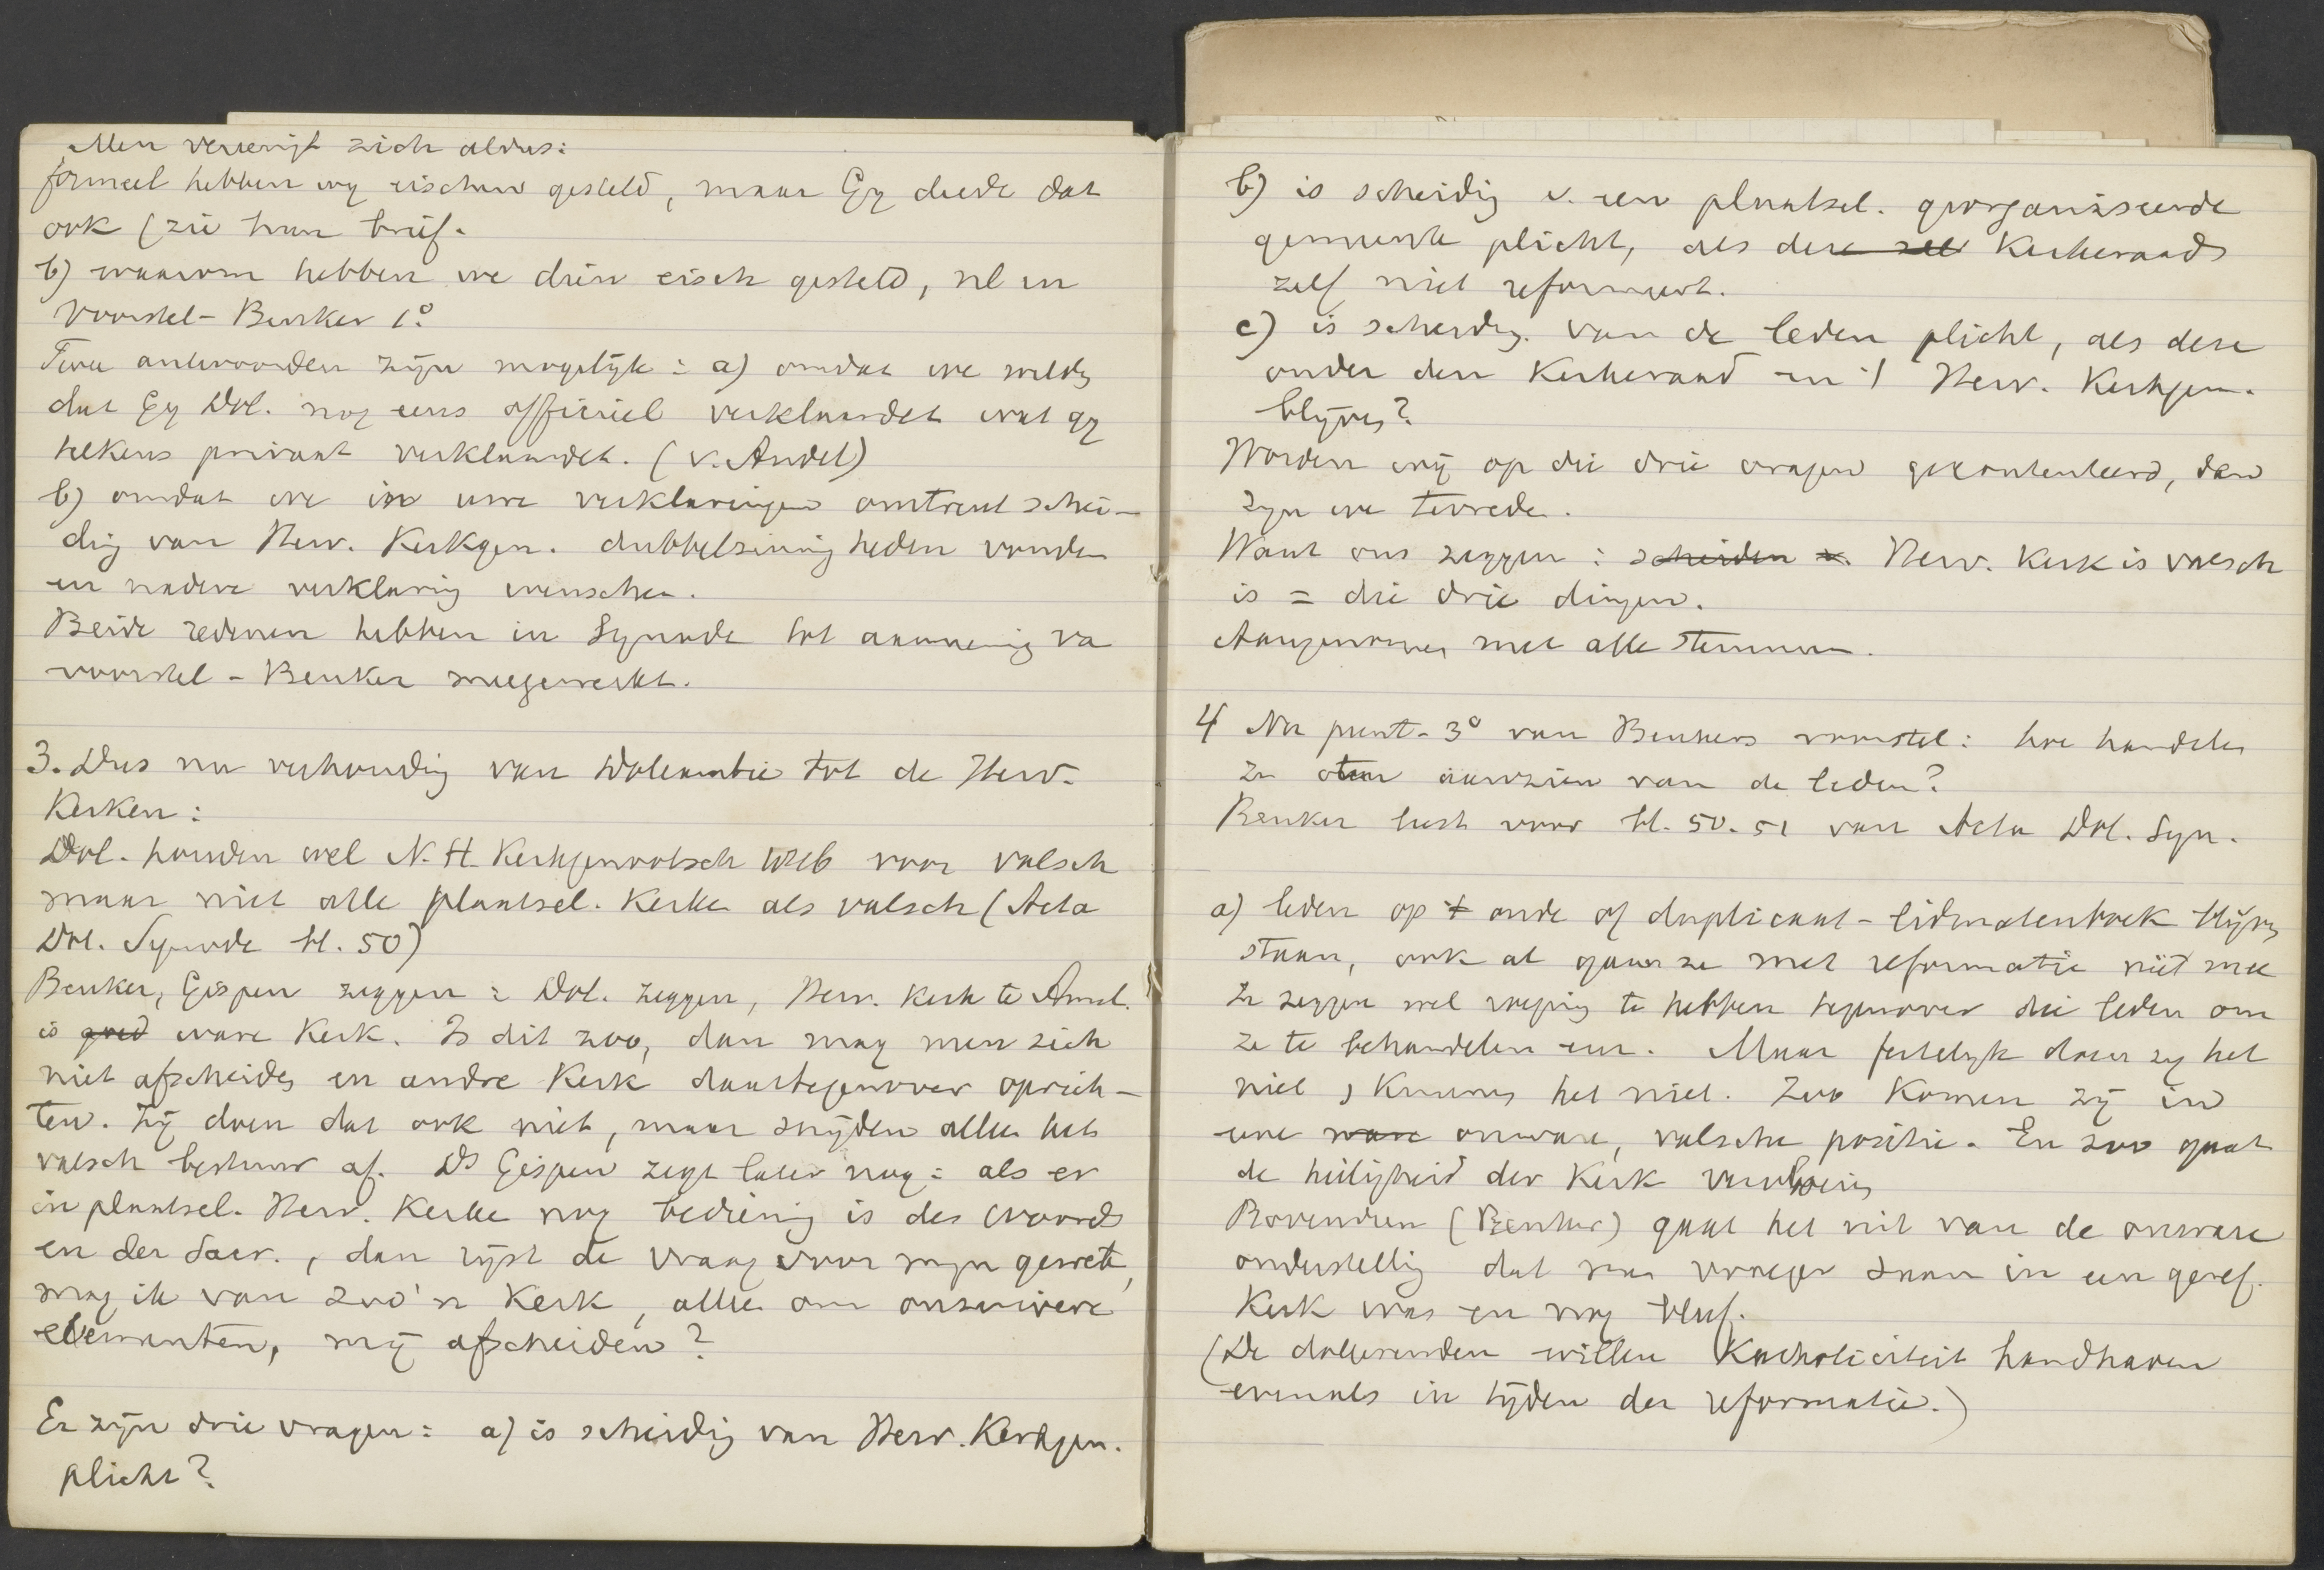 Men vereenigt zich aldus:
formeel hebben wy eischen gesteld, maar Gy deedt dat
ook (zie hun brief.
b) waarom hebben we dien eisch gesteld, nl in
Voorstel-Beuker 1º
Twee antwoorden zijn mogelijk: a) omdat we wilde
dat Gy Dol. nog eens officieel verklaardet wat gy
telkens privaat verklaardet. (v. Andel)
b) omdat we in uwe verklaringen omtrent schei-
dig van Herv. Kerkgen. dubbelzinnigheden vonden
en nadere verklaring wenschen.
Beide redenen hebben in Synode tot aanneming va
voorstel-Beuker meegewerkt.
3. Dus nu verhoudig van Doleantie tot de Herv.
Kerken:
Dol. houden wel N.H. Kerkgenootsch voor valsch
maar niet alle plaatsel. Kerke als valsch (Acta
Dol. Synode bl. 50)
Beuker, Gispen zeggen: Dol. zeggen, Herv. Kerk te Amst.
is goed ware Kerk. Is dit zoo, dan mag men zich
niet afscheide en andre Kerk daartegenover oprich-
ten. Zij doen dat ook niet, maar snyden alleen het
valsch bestuur af. Ds Gispen zegt later nog: als er
in plaatsel. Herv. Kerke nog bediening is des Woords
en der Sacr., dan rijst de vraag voor myn gewete,
mag ik van zoo'n Kerk, alleen om onzuivere
elementen, mij afscheiden?
Er zijn drie vragen: a) is scheidig van Herv. Kerkgen.
plicht?
b) is scheidig v. een plaatsel. georganiseerde
gemeente plicht, als deze zelf Kerkeraad
zelf niet reformeert.
c) is scheidg. van de leden plicht, als deze
onder den Kerkeraad en 't Herv. Kerkgen.
blijven?
Worden wij op die drie vragen gekontenteerd, dan
zyn we tevreden.
Want ons zeggen: scheiden v. Herv. Kerk is valsch
is = die drie dingen.
Aangenomen met alle stemmen.
4 Nu punt-3º van Beukers voorstel: hoe handelen
ze aanzien van de leden?
Beuker leest voor bl. 50.51 van Acta Dol. Syn.
a) leden op 't oude of duplicaat-lidmatenboek blijve
staan, ook al gaan ze met reformatie niet mee
Ze zeggen wel roeping te hebben tegenover die leden om
ze te behandelen enz. Maar feitelyk doen zy het
niet, Kunnen het niet. Zoo Komen zij in
eene ware onware, valsche positie. En zoo gaat
de heiligheid der Kerk verloren
Bovendien (Beuker) gaat het uit van de onware
onderstellig dat men vroeger in een geref.
Kerk was en nog bleef.
(De doleerenden willen Katholiciteit handhaven
evenals in tijden der reformatie.)